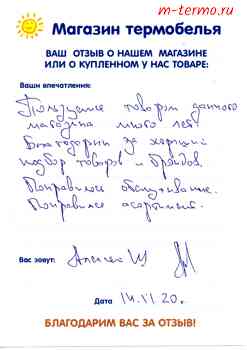 m-termo.ru
Магазин термобелья
ВАШ ОТЗЫВ О НАШЕМ МАГАЗИНЕ
ИЛИ О КУПЛЕННОМ У НАС ТОВАРЕ:
Ваши впечатления:
Пользуемся товаром данного
магазина много лет!
Благодарны за хороший
подбор товаров и брэндов.
Понравилось обслуживание.
Понравился ассортимент.
Вас зовут:
Дата 14.11 20г.
БЛАГОДАРИМ ВАС ЗА ОТЗЫВ!